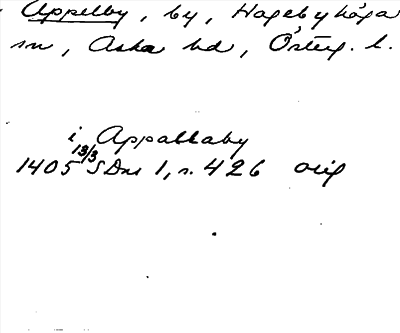 Appelby, by, Hagebyhöga
sn, Aska hd, Östeg. l.
i Appallaby
1405 13/3 SDns 1, s. 426 orig